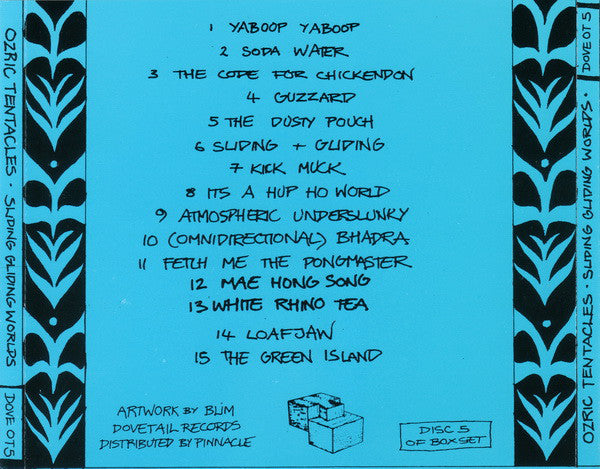 OZRIC TENTACLES · SLIDING GLIDING WORLDS
DOVE OT5
1 YABOOP YABOOP
2 SODA WATER
3 THE CODE FOR CHICKENDON
4 GUZZARD
5 THE DUSTY POUCH
6 SLIDING + GLIDING
7 KICK MUCK
8 ITS A HUP HO WORLD
9 ATMOSPHERIC UNDERSLUNKY
10 (OMNIDIRECTIONAL) BHADRA
11 FETCH ME THE PONGMASTER
12 MAE HONG SONG
13 WHITE RHINO TEA
14 LOAFJAW
15 THE GREEN ISLAND
ARTWORK BY BLIM
DOVETAIL RECORDS
DISTRIBUTED BY PINNACLE
DISC 5
OF BOXSET
OZRIC TENTACLES · SLIDING GLIDING WORLDS ·
DOVE OT 5